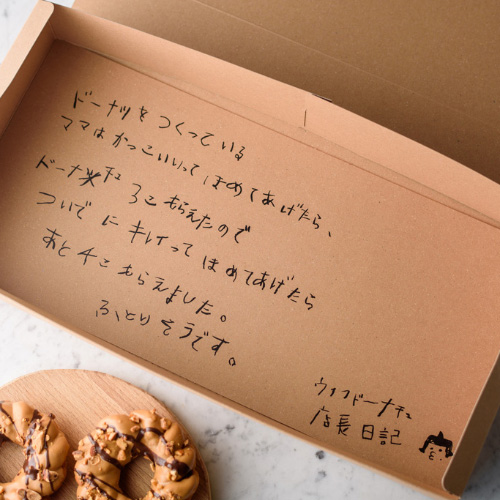 ドーナツを つくっている
ママは かっこいいって ほめてあげたら、
ドーナツチェ 3こ もらえたので
ついでに キレイって ほめてあげたら
あと 4こ もらえました。
ふとり そうです。
ウィフドーナチェ
店長 日記